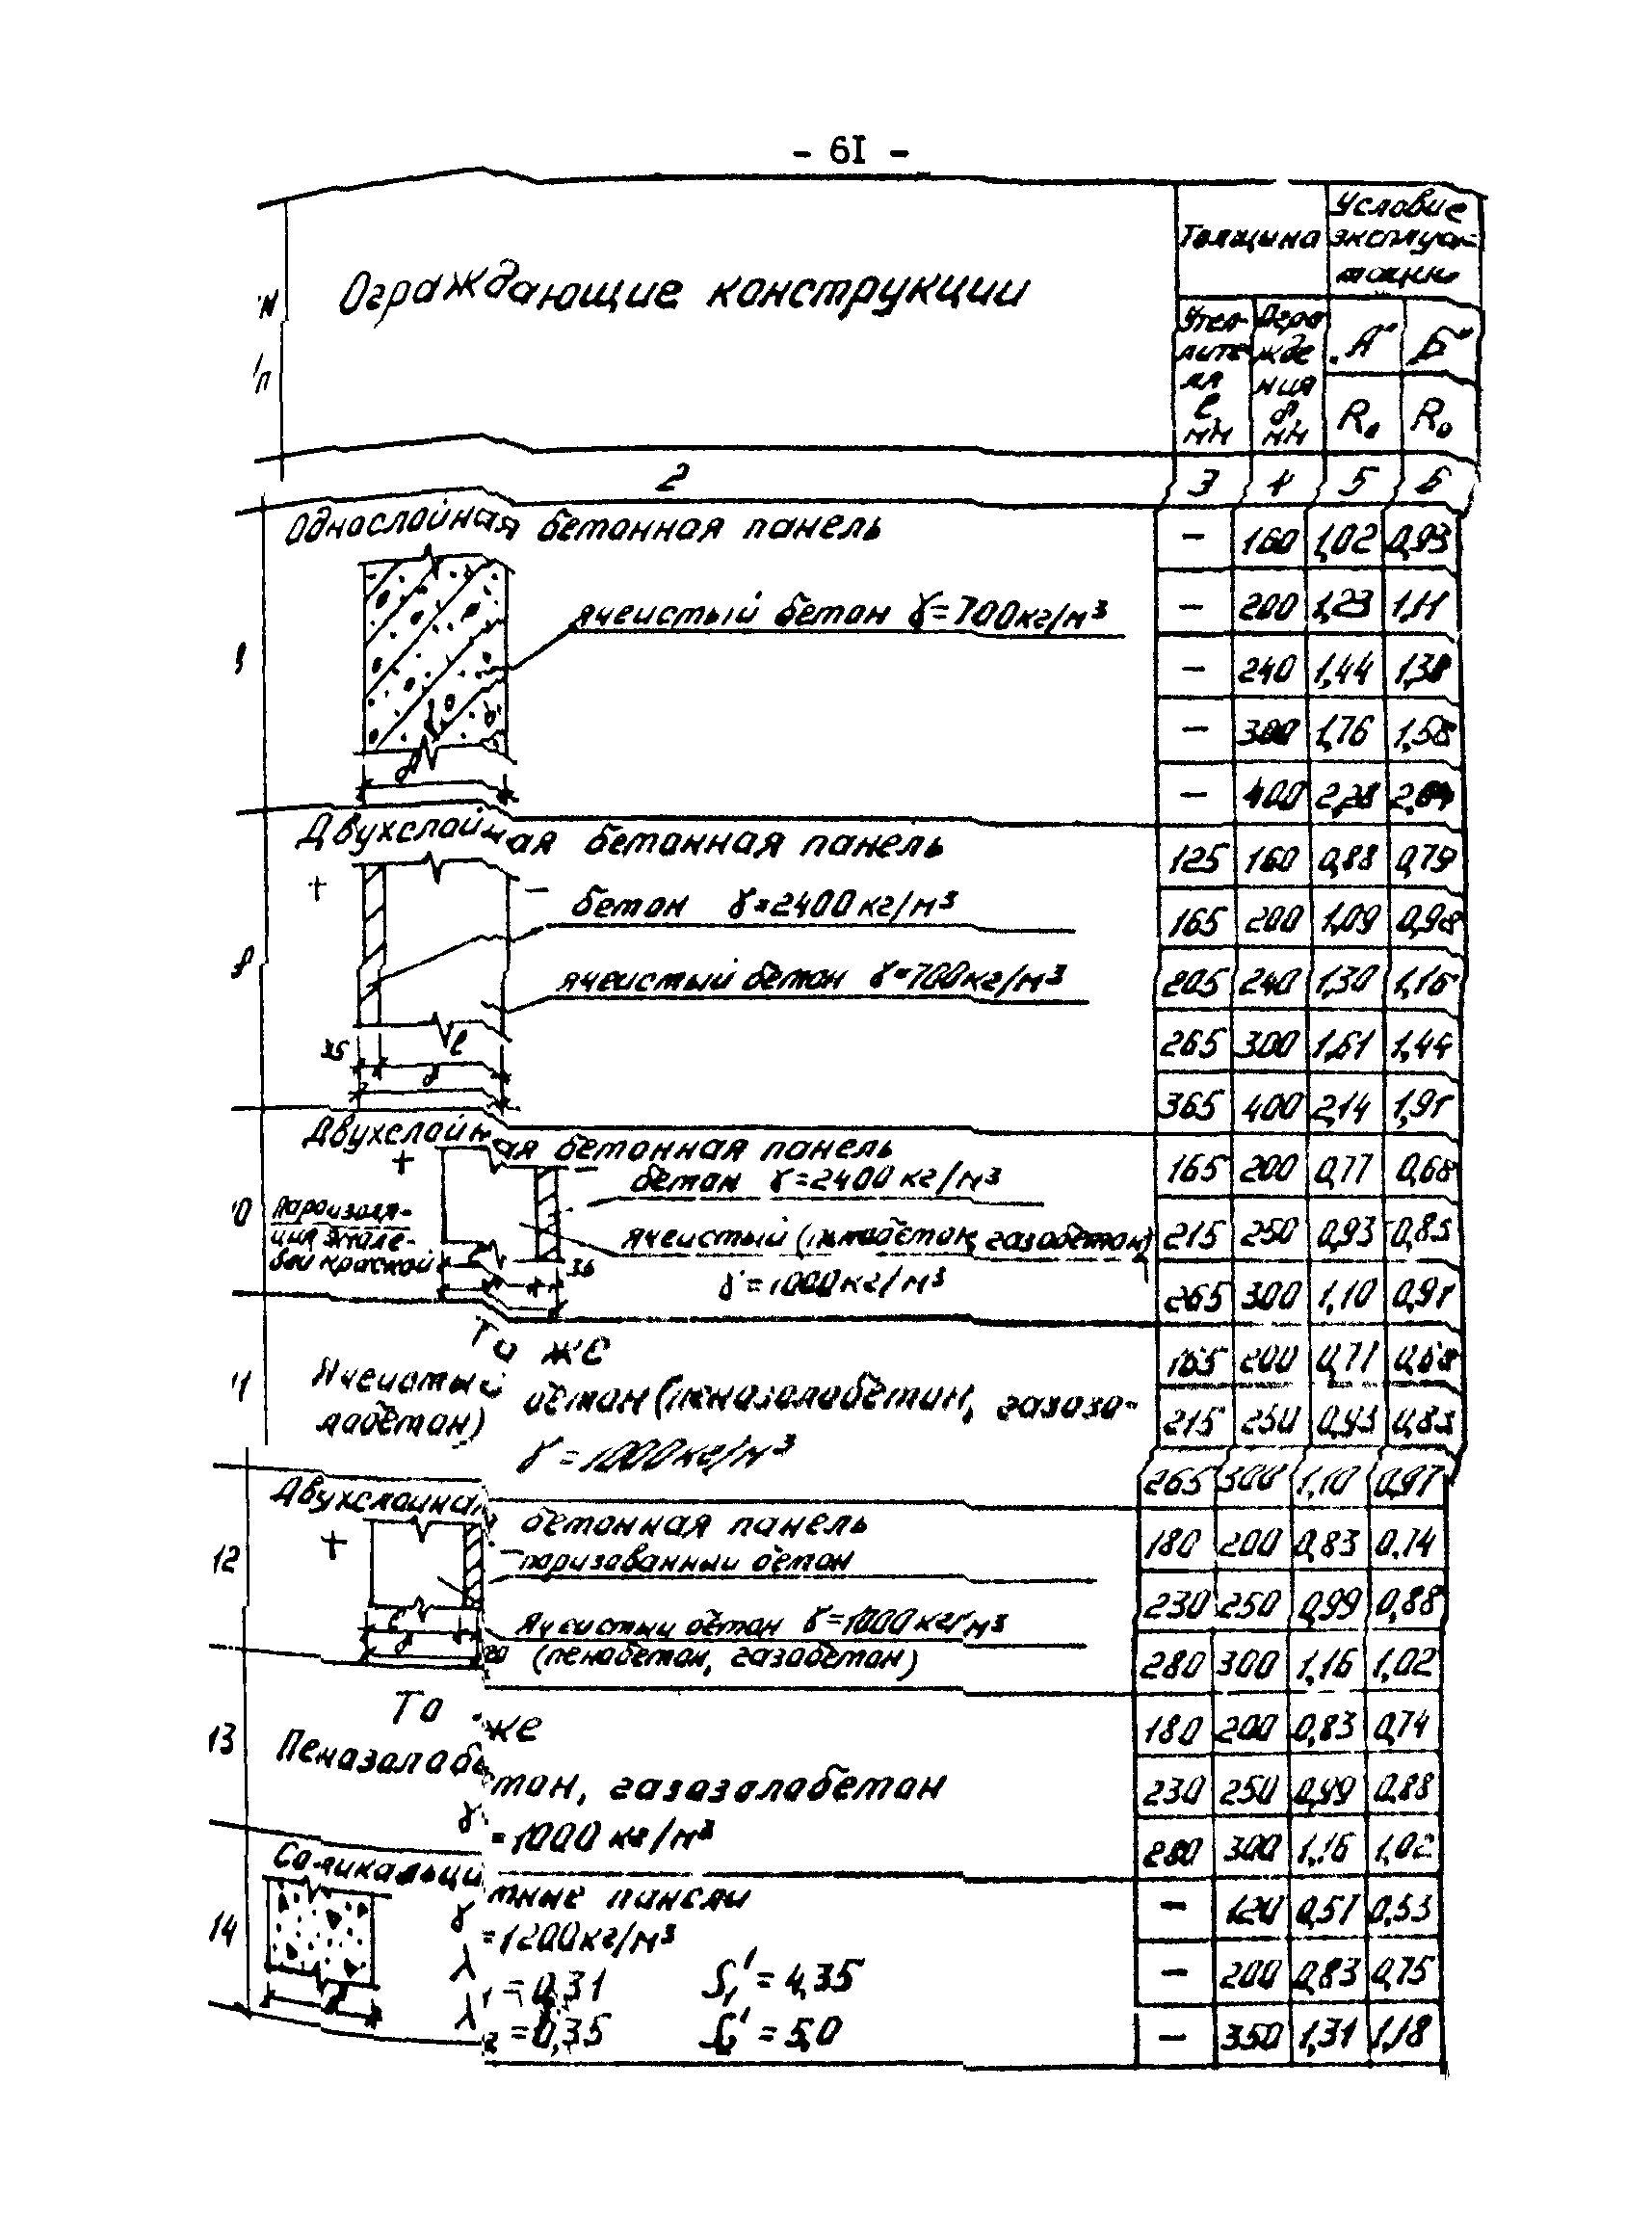 - 61 -
№ п/п
Ограждающие конструкции
Толщина
Условие эксплуатации
Утеплителя е, мм
Ограждения δ, мм
„А"
„Б"
R₀
R₀
2 3 4 5 6
Однослойная бетонная панель
ячеистый бетон γ=700кг/м³
δ
- 160 1,02 0,93
- 200 1,23 1,11
- 240 1,44
- 300 1,76 1,58
- 400 2,28
9
Двухслойная бетонная панель
+ -
бетон γ=2400кг/м³
ячеистый бетон γ=700кг/м³
35 е
δ
125 160 0,88 0,79
165 200 1,09 0,98
205 240 1,30 1,16
265 300 1,61 1,44
365 400 2,14 1,91
10
Двухслойная бетонная панель
+ -
бетон γ=2400кг/м³
Пароизоля-
ция эмале-
вой краской
ячеистый (пенобетон, газобетон)
γ=1000кг/м³
е
165 200 0,77 0,68
215 250 0,93 0,83
265 300 1,10
11
То же
Ячеистый бетон (пеназолабетон, газоза-
лабетон)
γ=1000кг/м³
165 200 0,77 0,68
215 250 0,93 0,83
265 300 1,10 0,97
12
Двухслойная бетонная панель
+ -
паризованный бетон
Ячеистый бетон γ=1000кг/м³
20 (пенабетон, газабетон)
е
δ
180 200 0,83 0,74
230 250 0,99 0,88
280 300 1,16 1,02
13
То же
Пеназалабетон, газазалабетон
γ=1000 кг/м³
180 200 0,83 0,74
230 250 0,99 0,88
280 300 1,16 1,02
14
Силикальцитные панели
γ=1200кг/м³
λ₁=0,31 S₁'=4,35
λ₂=0,35 =5,0
- 120 0,57 0,53
- 200 0,83 0,75
- 350 1,31 1,18